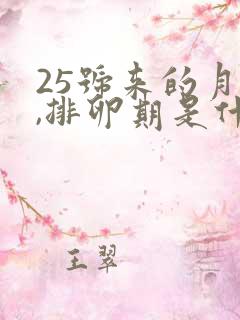 25号来的月
,排卵期是什
王翠